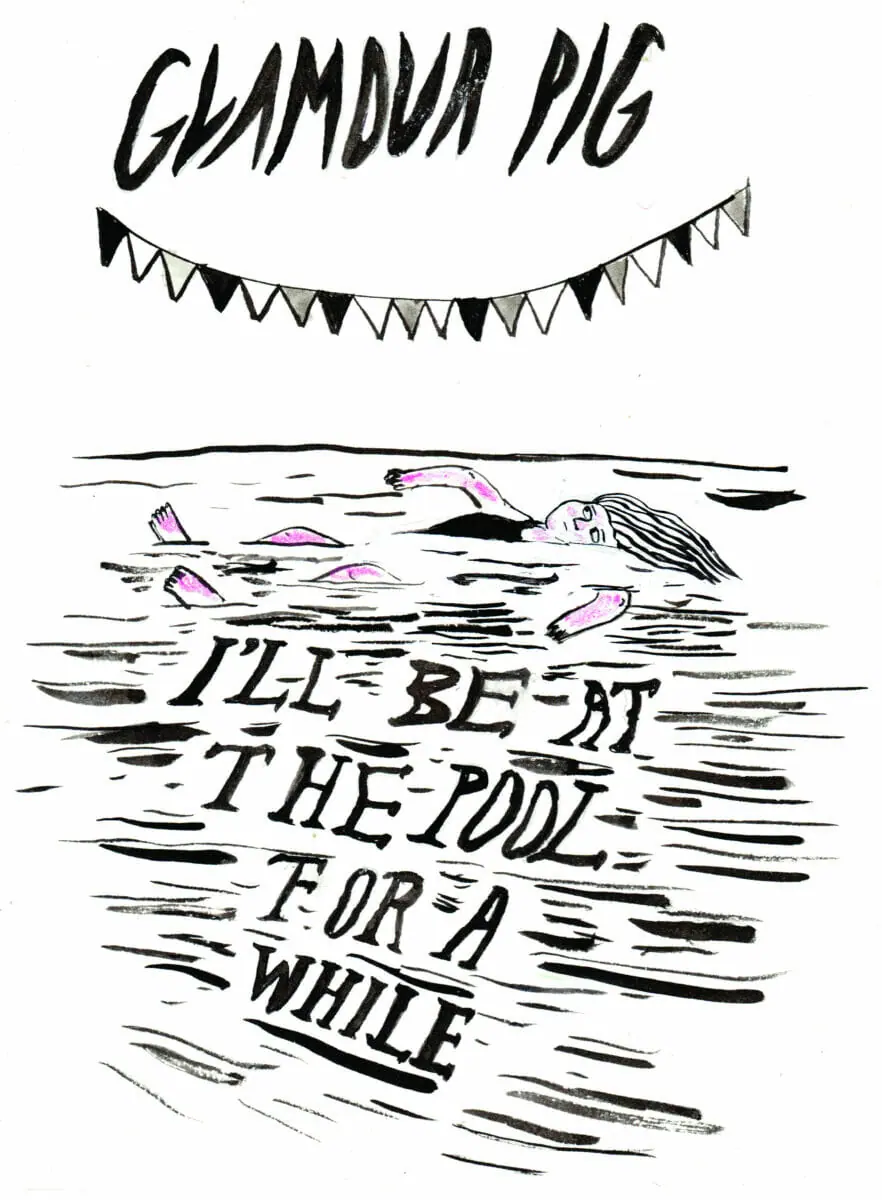 GLAMOUR PIG
I'LL BE AT
THE POOL
FOR A
WHILE